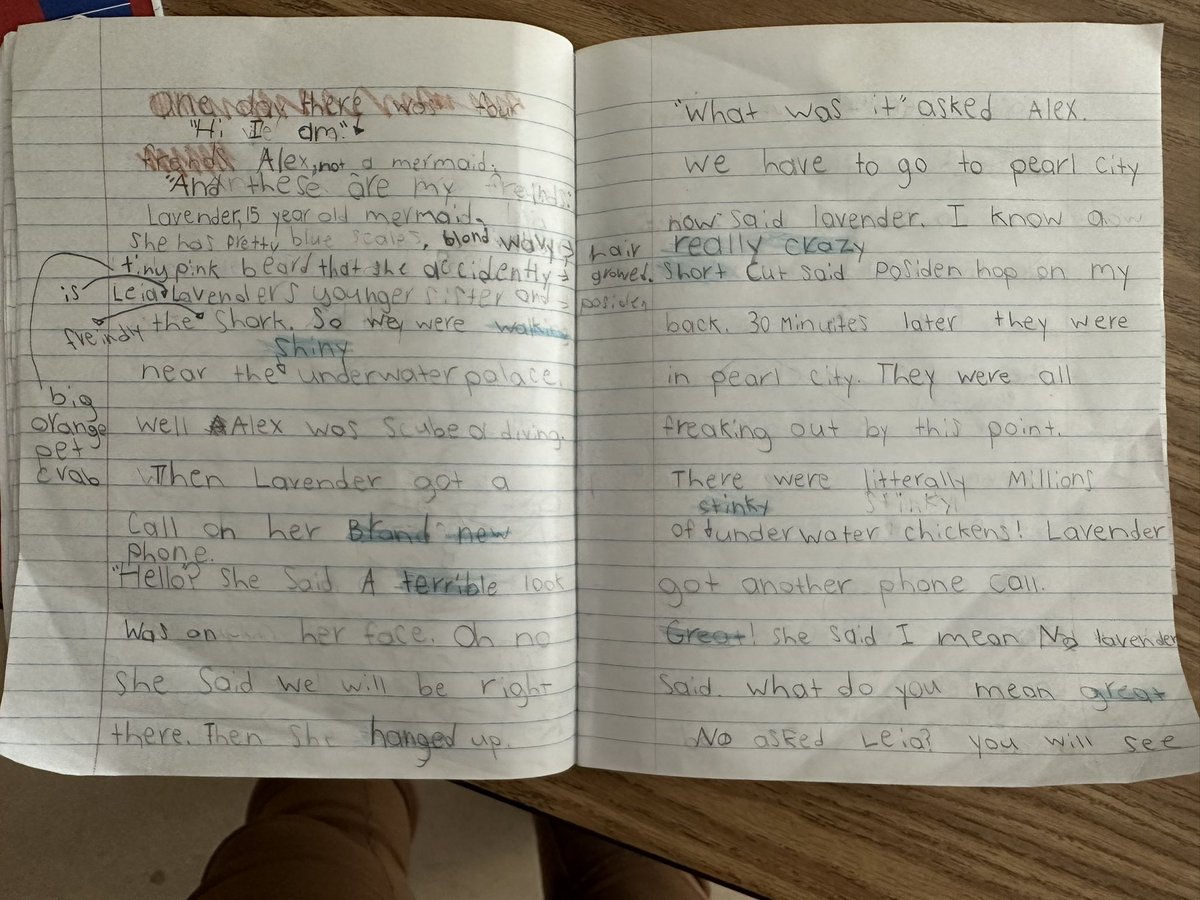 one day there was four
"Hi I am"
friends Alex, not a mermaid.
"And these are my freinds."
Lavender, 15 year old mermaid.
She has pretty blue scales, blond wavy → hair
tiny pink beard that she accidently → growed.
is Leia Lavenders younger sister and → posiden
freindly the Shark. So they were walking
shiny
near the underwater palace.
big
orange
pet
crab
well Alex was scubea diving.
When Lavender got a
Call on her Brand new
phone.
"Hello"? She Said A terrible look
Was on her face. Oh no
She Said we will be right
there. Then she hanged up.
"What was it" asked Alex.
we have to go to pearl city
now said lavender. I know a
really crazy
Short Cut said Posiden hop on my
back. 30 Minuites later they were
in pearl city. They were all
freaking out by this point.
There were litterally Millions
stinky stinky
of underwater chickens! Lavender
got another phone call.
Great! she said I mean No lavender
Said. what do you mean great
No asked Leia? you will see